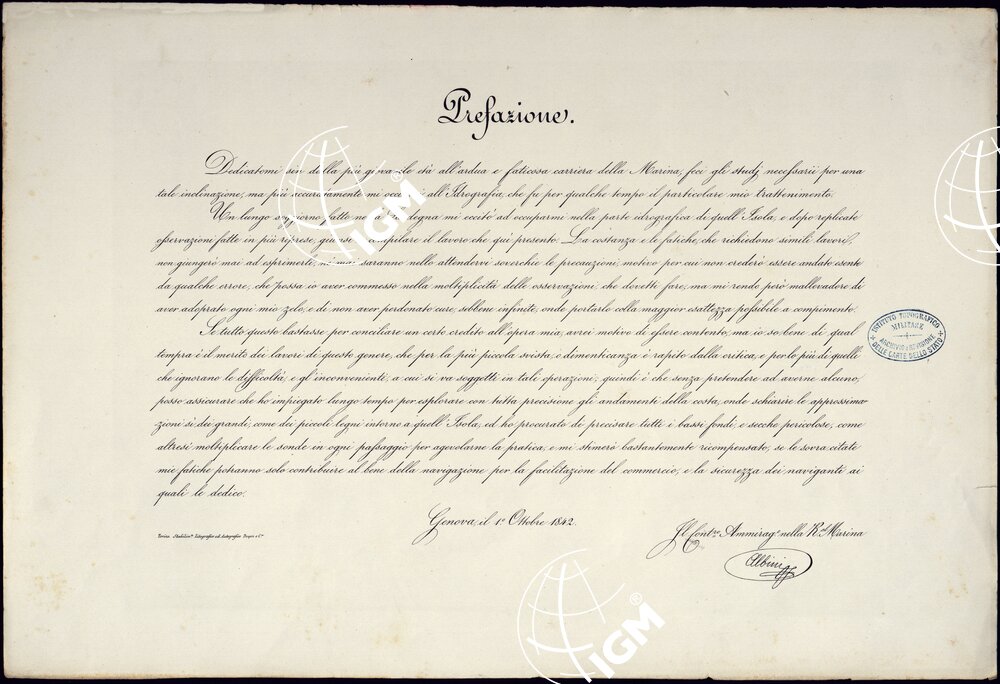 Prefazione.
Dedicatomi sin dalla più giovanile età all'ardua e faticosa carriera della Marina, feci gli studj necessarii per una
tale inclinazione, ma più accuratamente mi all'Idrografia, che fu per qualche tempo il particolare mio trattenimento.
Un lungo soggiorno fatto mi eccitò ad occuparmi nella parte idrografica di quell'Isola, e dopo replicate
osservazioni fatte in più riprese, giunse a il lavoro che quì presento. La costanza e le fatiche, che richiedono simili lavori,
non giungerò mai ad esprimerle, nè mai saranno nello attendervi soverchie le precauzioni, motivo per cui non crederò essere andato esente
da qualche errore, che possa io aver commesso nella moltiplicità delle osservazioni, che dovetti fare, ma mi rendo però mallevadore di
aver adoprato ogni mio zelo, e di non aver perdonato cure, sebbene infinite, onde portarlo colla maggior esattezza possibile a compimento.
Se tutto questo bastasse per conciliare un certo credito all'opera mia, avrei motivo di essere contento, ma io so bene di qual
tempra è il merito dei lavori di questo genere, che per la più piccola svista, e dimenticanza è rapito dalla critica, e per lo più di quelle
che ignorano le difficoltà, e gl'inconvenienti, a cui si va soggetti in tali operazioni; quindi è che senza pretendere ad averne alcuno,
posso assicurare che ho impiegato lungo tempo per esplorare con tutta precisione gli andamenti della costa, onde schiarire le approssima-
zioni sì dei grandi, come dei piccoli legni intorno a quell'Isola, ed ho procurato di precisare tutti i bassi fondi, e secche pericolose, come
altresì moltiplicare le sonde in ogni passaggio per agevolarne la pratica, e mi stimerò bastantemente ricompensato, se le sovra citate
mie fatiche potranno solo contribuire al bene della navigazione per la facilitazione del commercio, e la sicurezza dei naviganti ai
quali le dedico.
Genova, il 1º Ottobre 1842.
Il Contro Ammirago nella Ral Marina
Albini
Torino
ISTITUTO TOPOGRAFICO
MILITARE
ARCHIVIO e REVISIONE
DELLE CARTE DELLO STATO
IGM®
IGM®